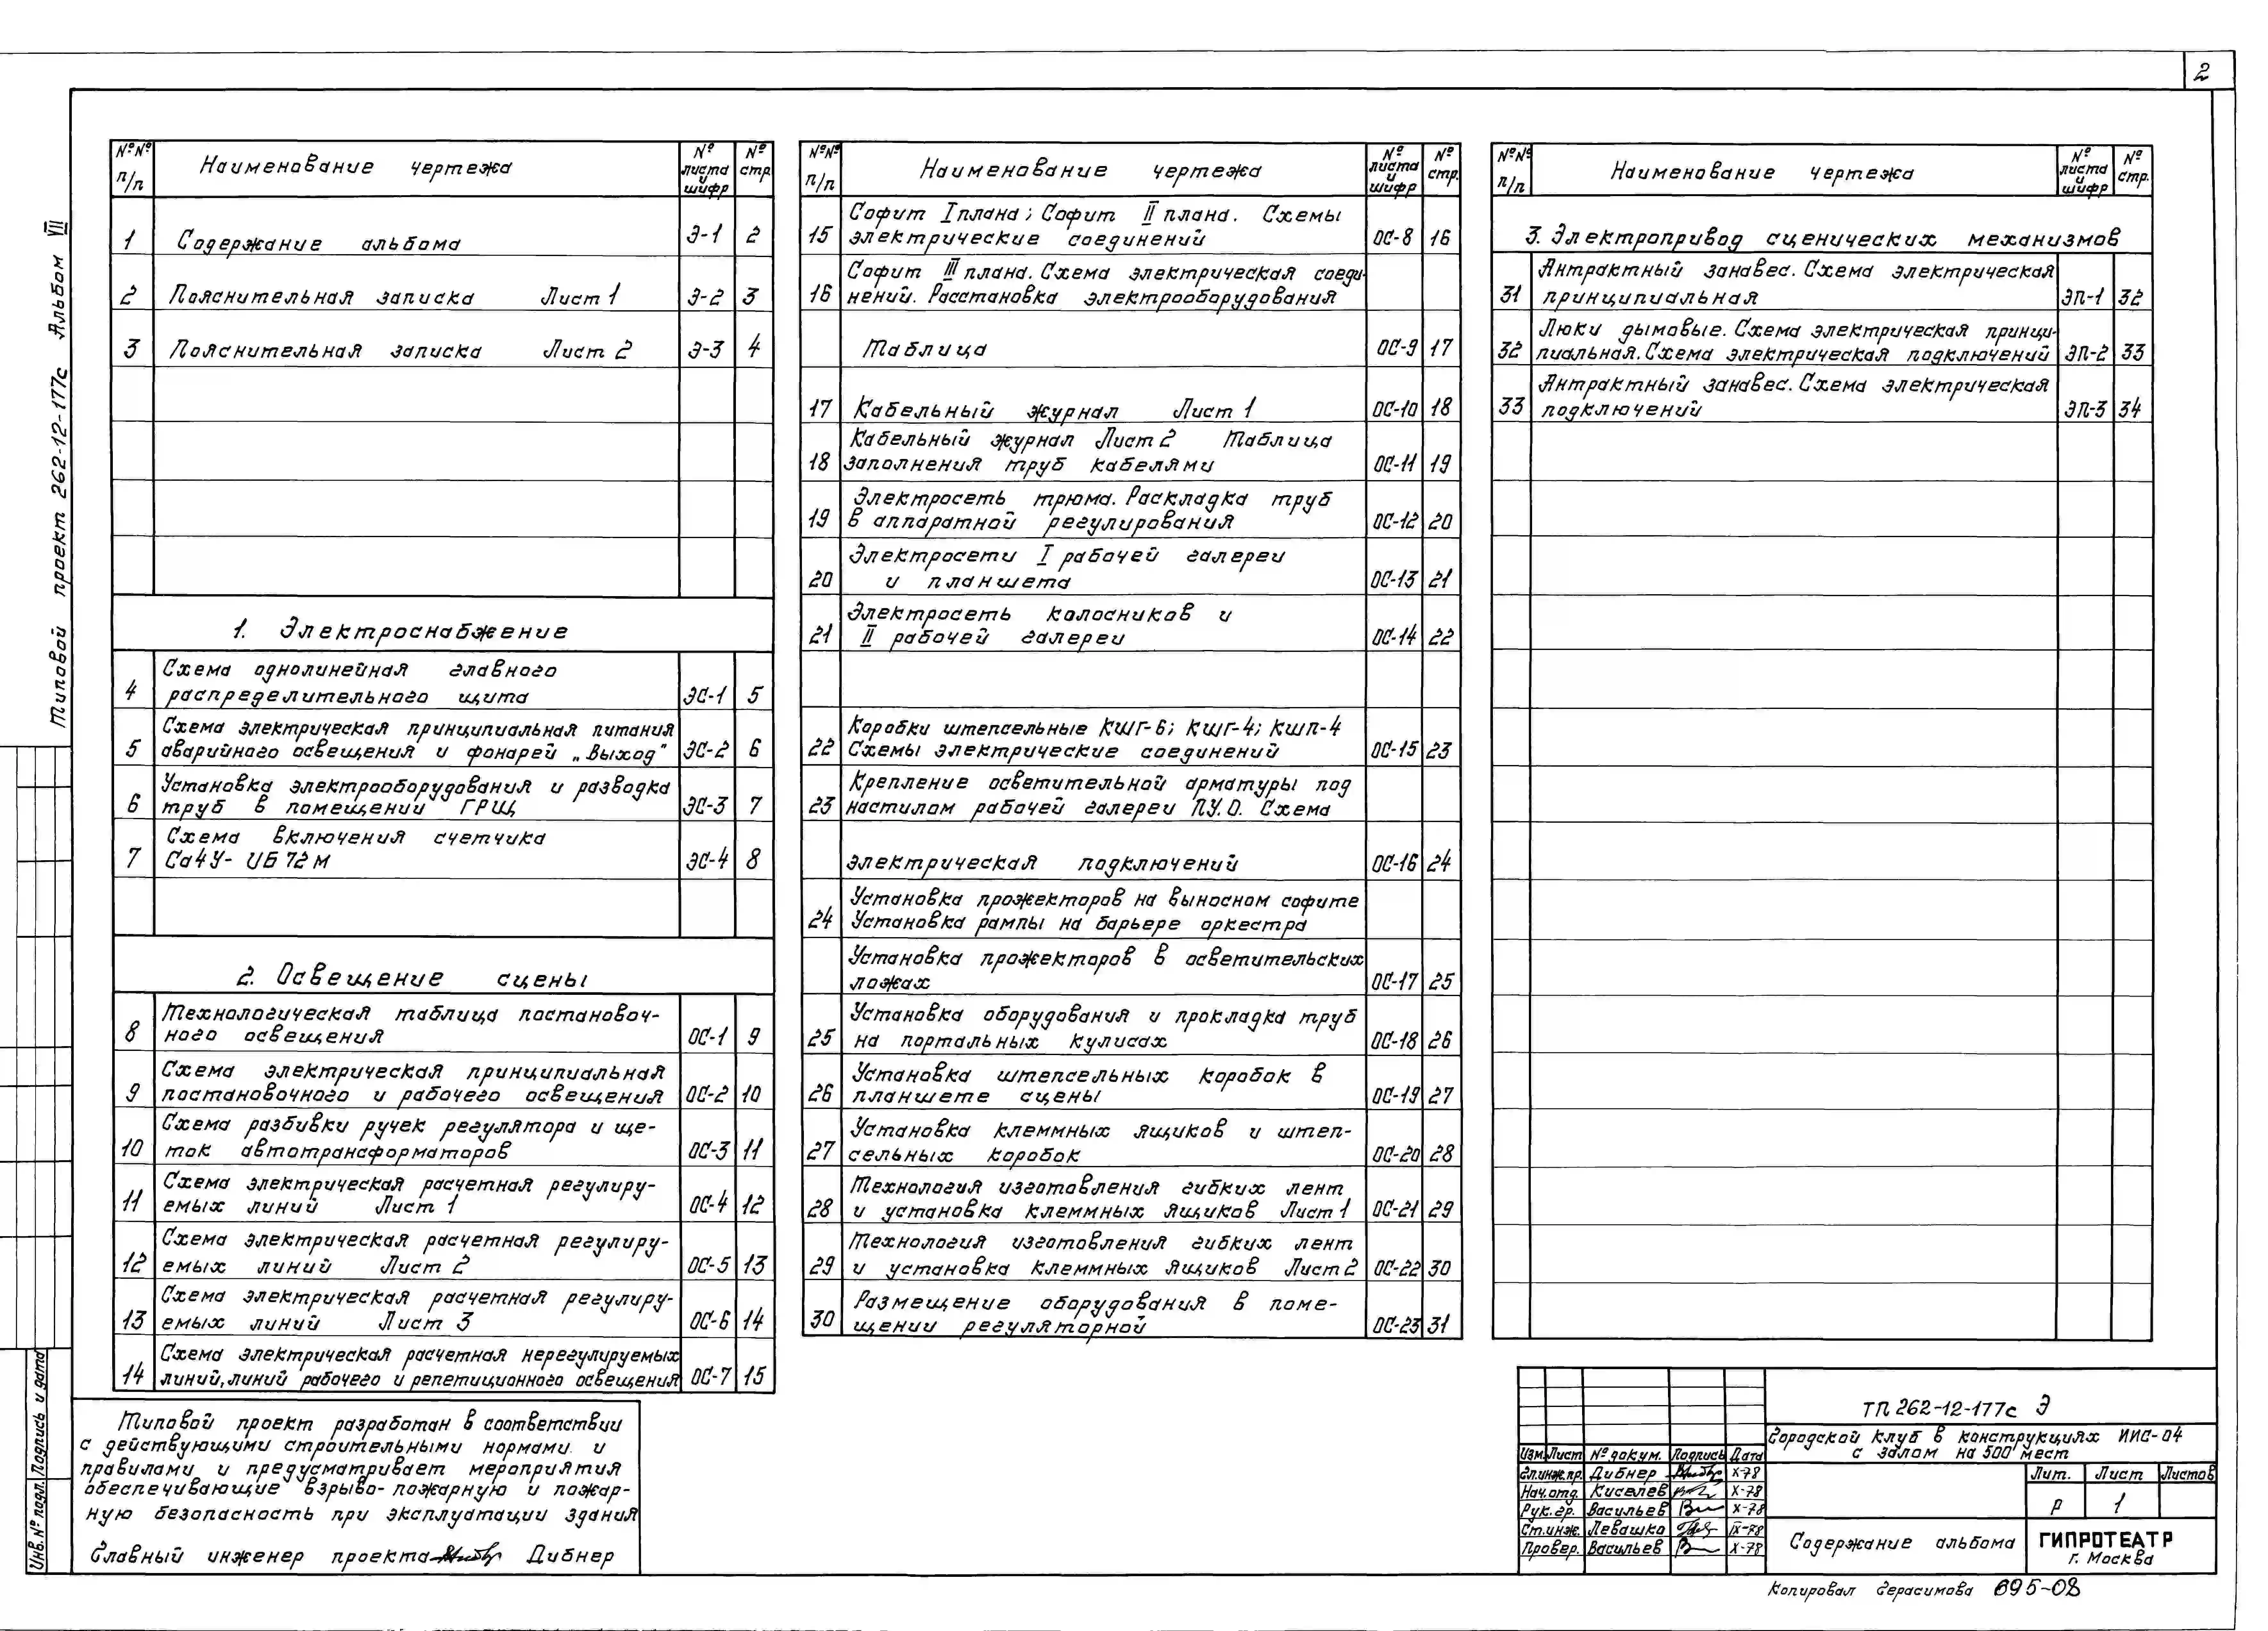 2
Типовой проект 262-12-177с Альбом VII
№№ п/п Наименование чертежа № листа и шифр № стр.
1 Содержание альбома Э-1 2
2 Пояснительная записка Лист 1 Э-2 3
3 Пояснительная записка Лист 2 Э-3 4
1. Электроснабжение
Схема однолинейная главного
4 распределительного щита ЭС-1 5
Схема электрическая принципиальная питания
5 аварийного освещения и фонарей „Выход" ЭС-2 6
Установка электрооборудования и разводка
6 труб в помещении ГРЩ ЭС-3 7
Схема включения счетчика
7 Са4У- И672М ЭС-4 8
2. Освещение сцены
Технологическая таблица постановоч-
8 ного освещения ОС-1 9
Схема электрическая принципиальная
9 постановочного и рабочего освещения ОС-2 10
Схема разбивки ручек регулятора и ще-
10 ток автотрансформаторов ОС-3 11
Схема электрическая расчетная регулиру-
11 емых линий Лист 1 ОС-4 12
Схема электрическая расчетная регулиру-
12 емых линий Лист 2 ОС-5 13
Схема электрическая расчетная регулиру-
13 емых линий Лист 3 ОС-6 14
Схема электрическая расчетная нерегулируемых
14 линий, линий рабочего и репетиционного освещения ОС-7 15
№№ п/п Наименование чертежа № листа и шифр № стр.
Софит I плана; Софит II плана. Схемы
15 электрические соединений ОС-8 16
Софит III плана. Схема электрическая соеди-
16 нений. Расстановка электрооборудования
Таблица ОС-9 17
17 Кабельный журнал Лист 1 ОС-10 18
Кабельный журнал Лист 2 Таблица
18 заполнения труб кабелями ОС-11 19
Электросеть трюма. Раскладка труб
19 в аппаратной регулирования ОС-12 20
Электросети I рабочей галереи
20 и планшета ОС-13 21
Электросеть колосников и
21 II рабочей галереи ОС-14 22
Коробки штепсельные КШГ-6; КШГ-4; КШП-4
22 Схемы электрические соединений ОС-15 23
Крепление осветительной арматуры под
23 настилом рабочей галереи П.У.О. Схема
электрическая подключений ОС-16 24
Установка прожекторов на выносном софите
24 Установка рампы на барьере оркестра
Установка прожекторов в осветительских
ложах ОС-17 25
Установка оборудования и прокладка труб
25 на портальных кулисах ОС-18 26
Установка штепсельных коробок в
26 планшете сцены ОС-19 27
Установка клеммных ящиков и штеп-
27 сельных коробок ОС-20 28
Технология изготовления гибких лент
28 и установка клеммных ящиков Лист 1 ОС-21 29
Технология изготовления гибких лент
29 и установка клеммных ящиков Лист 2 ОС-22 30
Размещение оборудования в поме-
30 щении регуляторной ОС-23 31
№№ п/п Наименование чертежа № листа и шифр № стр.
3. Электропривод сценических механизмов
Антрактный занавес. Схема электрическая
31 принципиальная ЭП-1 32
Люки дымовые. Схема электрическая принци-
32 пиальная. Схема электрическая подключений ЭП-2 33
Антрактный занавес. Схема электрическая
33 подключений ЭП-3 34
Типовой проект разработан в соответствии
с действующими строительными нормами и
правилами и предусматривает мероприятия
обеспечивающие взрыво- пожарную и пожар-
ную безопасность при эксплуатации здания
Главный инженер проекта Дибнер
Инв. № подл. Подпись и дата
ТП 262-12-177с Э
Городской клуб в конструкциях ИИС-04
с залом на 500 мест
Изм. Лист № докум. Подпись Дата
Гл.инж.пр. Дибнер X-78
Нач.отд. Киселев X-78
Рук.гр. Васильев X-78
Ст.инж. Левашко IX-78
Провер. Васильев X-78
Лит. Лист Листов
Р 1
Содержание альбома
ГИПРОТЕАТР
г. Москва
Копировал Герасимова 695-08